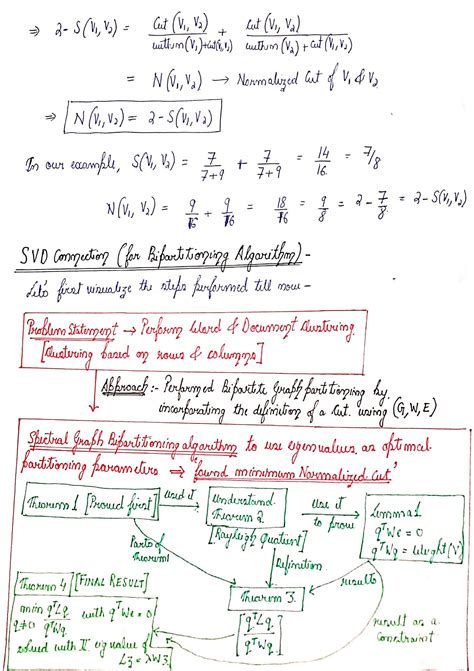 ⇒ 2-S(V₁,V₂) = Cut(V₁,V₂)/(within(V₁)+cut(V₁,V₂)) + Cut(V₁,V₂)/(within(V₂)+cut(V₁,V₂))
= N(V₁,V₂) → Normalized Cut of V₁ & V₂
⇒ N(V₁,V₂) = 2-S(V₁,V₂)
In our example, S(V₁,V₂) = 7/(7+9) + 7/(7+9) = 14/16 = 7/8
N(V₁,V₂) = 9/16 + 9/16 = 18/16 = 9/8 = 2-7/8 = 2-S(V₁,V₂)
SVD Connection (for Bipartitioning Algorithm)-
Let's first visualize the steps performed till now-
Problem Statement → Perform Word & Document Clustering.
[Clustering based on rows & columns]
Approach:- Performed Bipartite Graph partitioning by
incorporating the definition of a Cut. using (G,W,E)
Spectral Graph Bipartitioning algorithm to use eigenvalues as optimal
partitioning parameters ⇒ found minimum Normalized Cut
Theorem 1 [Proved first]
used it
Understand
Theorem 2
[Rayleigh Quotient]
use it
to prove
Lemma 1
qᵀWe = 0
qᵀWq = Weight(V)
Parts of
Theorem 1
Definition
results
Theorem 4 [FINAL RESULT]
min qᵀLq/qᵀWq with qᵀWe=0
q≠0
solved with II eigvalue of
Lz = λWz
Theorem 3.
[qᵀLq/qᵀWq]
result as a
constraint